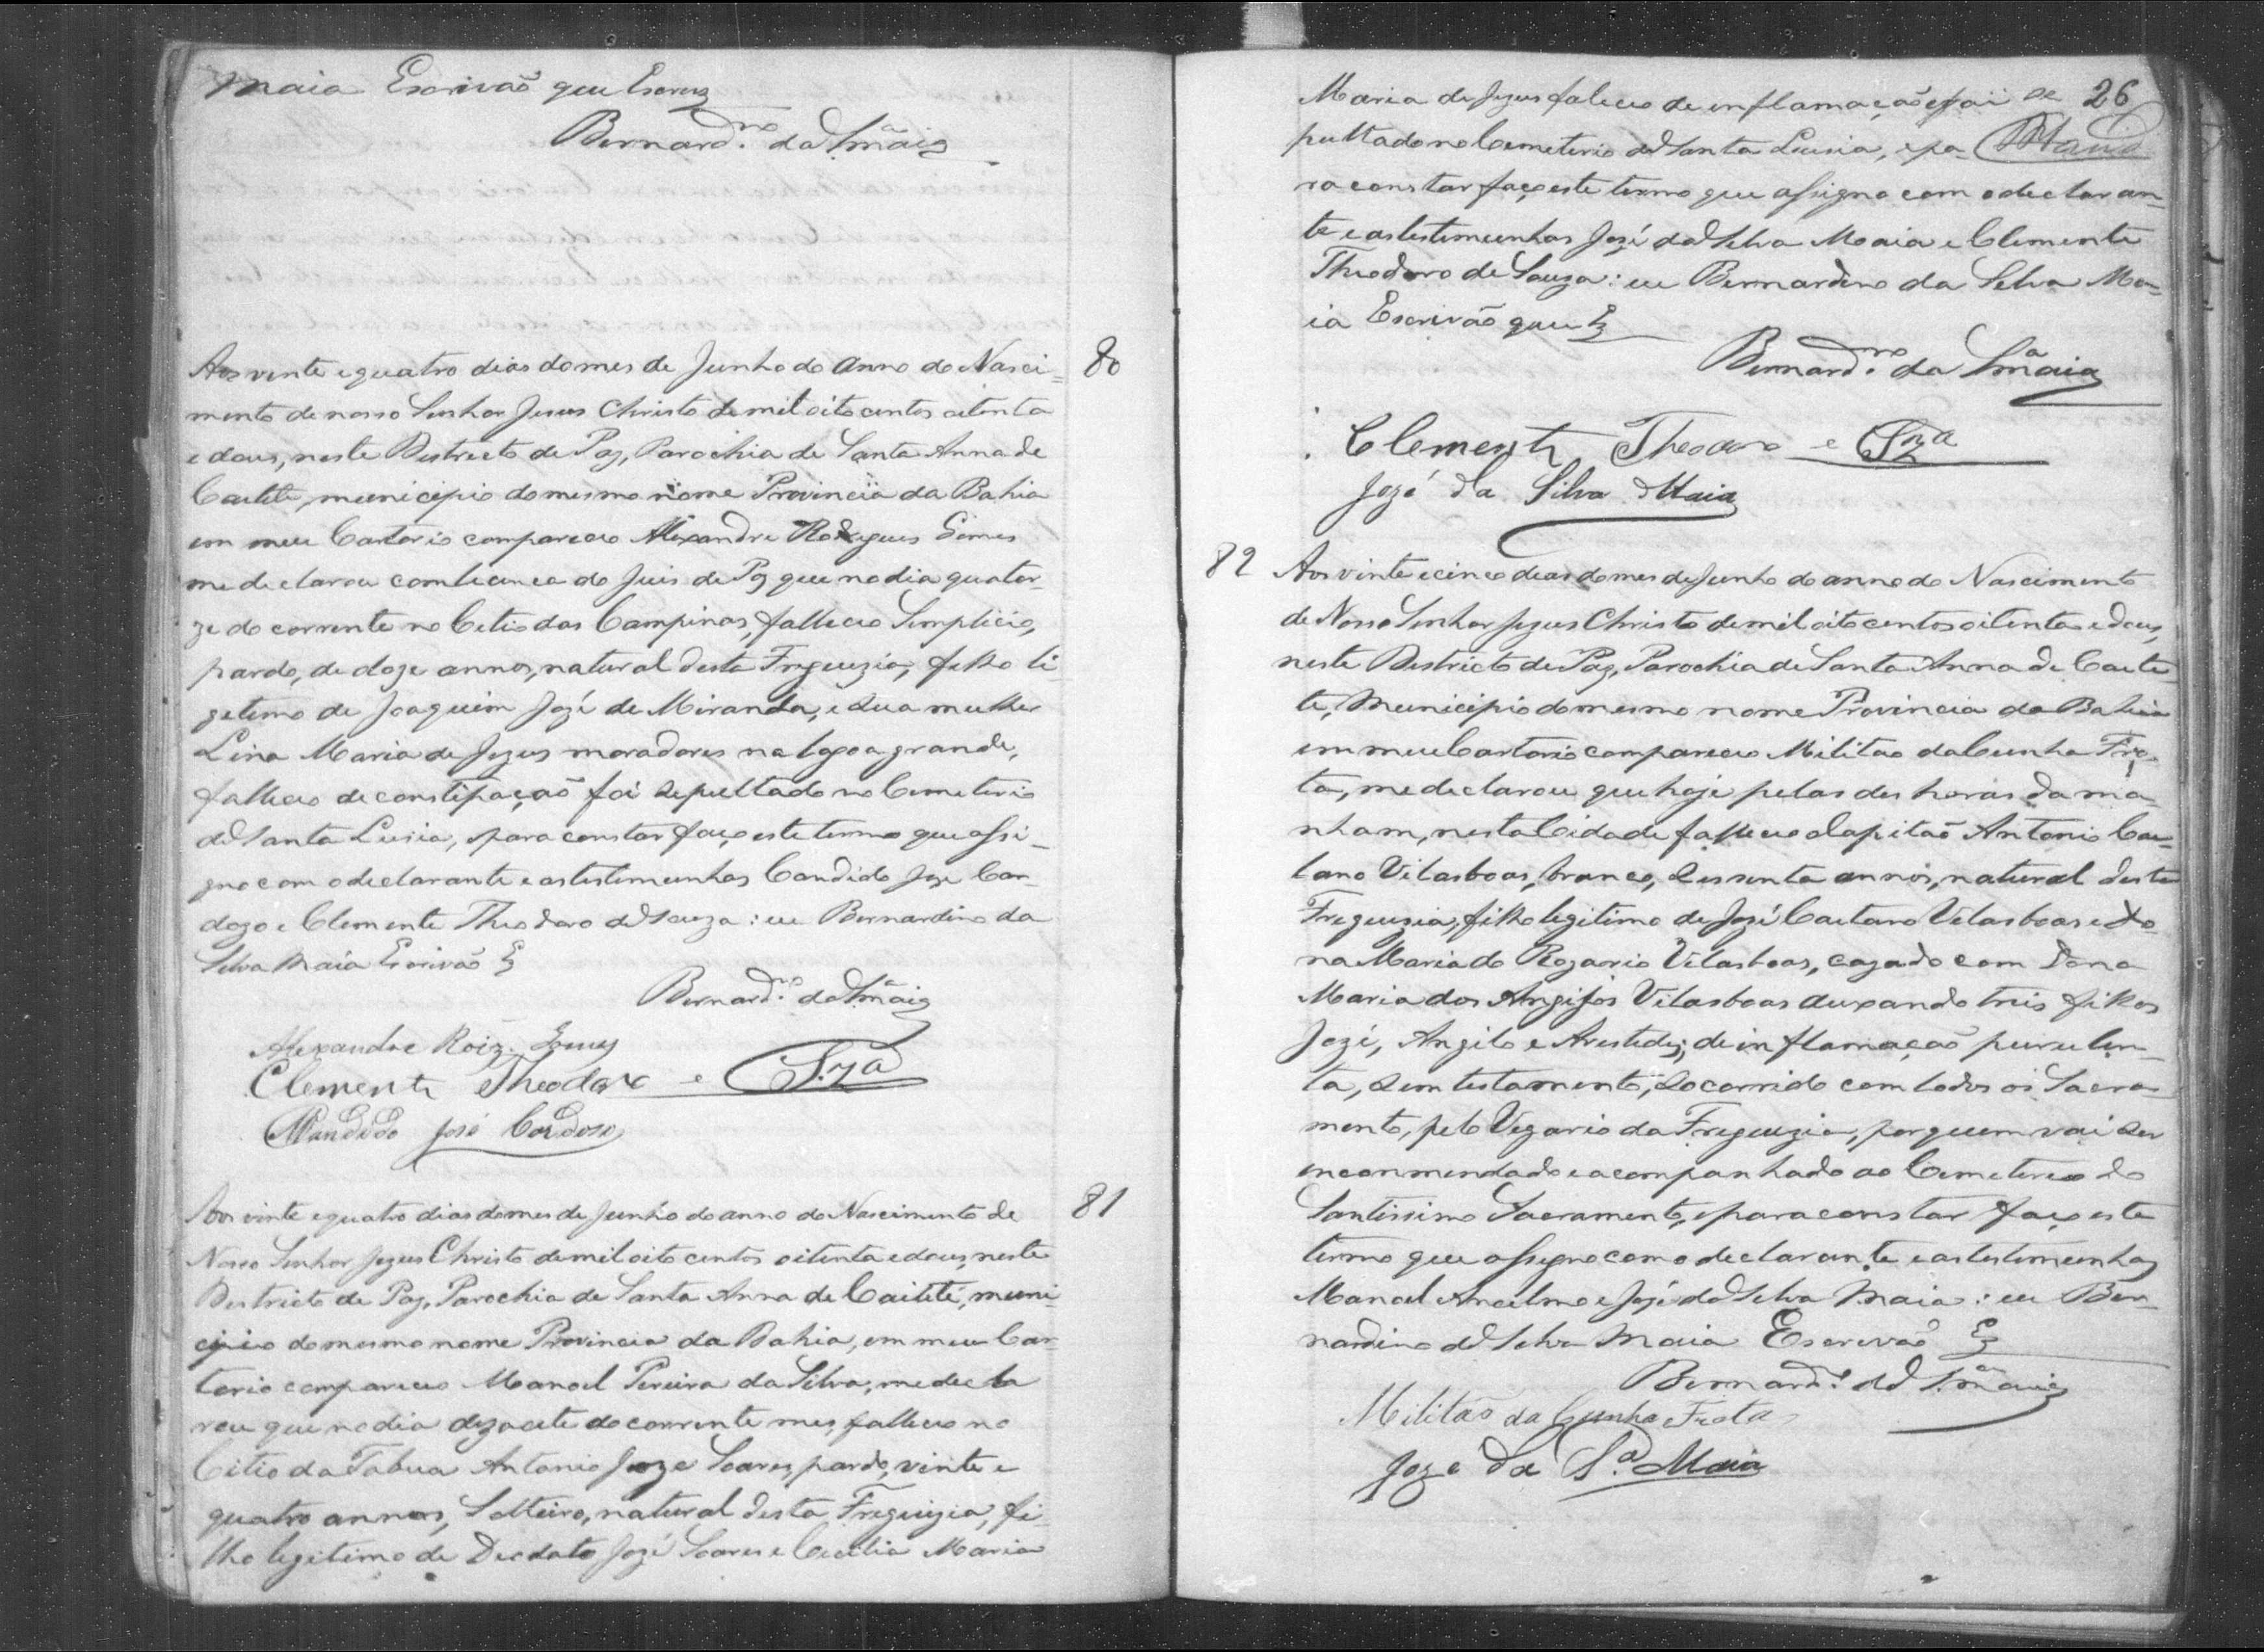 Maia Escrivão que Escrevy
Bernard.no da S.a Maia
80
Aos vinte e quatro dias do mes de Junho do anno do Nasci-
mento de nosso Senhor Jesus Christo de mil oito centos oitenta
e dous, neste Destricto de Paz, Parochia de Santa Anna de
Caeteté, municipio do mesmo nome Provincia da Bahia
em meu Cartorio compareceo Alexandre Rodrigues Gomes
me declarou com licença do Juis de Pz que no dia quator-
ze do corrente no Citio das Campinas, falleceo Simplicio,
pardo, de doze annos, natural desta Freguezia, filho li
getimo de Joaquim José de Miranda, e sua mulher
Lina Maria de Jezus moradores na lagoa grande,
falleceo de constipação foi sepultado no Cemeterio
de Santa Lusia, e para constar faço este termo que assi-
gno com o declarante e as testimunhas Candido Joze Car-
dozo e Clemente Theodoro de Souza: eu Bernardino da
Silva Maia Escrivão
Bernard.no da S.a Maia
Alexandre Roiz. Gomes
Clemente Theodoro e Sza
Candido José Cardoso
81
Aos vinte e quatro dias do mes de Junho do anno do Nascimento de
Nosso Senhor Jezus Christo de mil oito centos oitenta e dous, neste
Destricto de Paz, Parochia de Santa Anna de Caiteté, muni-
cipio do mesmo nome Provincia da Bahia, em meu Car-
torio compareceo Manoel Pereira da Silva, me decla
rou que no dia dezacete do corrente mes, falleceo no
Citio da Tabua Antonio Joze Soares, pardo, vinte e
quatro annos, Solteiro, natural desta Freguizia, fi-
lho legitimo de Deodato José Soares e Cecilia Maria
26
Maria de Jezus faleceo de inflamação e foi se
pultado no Cemeterio de Santa Lusia, e pa-
Maia
ra constar faço este termo que assigno com o declaran-
te e as testimunhas José da Silva Maia e Clemente
Theodoro de Souza: eu Bernardino da Silva Ma-
ia Escrivão que
Bernard.no da S.a Maia
Clemente Theodoro e Sza
Jozé da Silva Maia
82
Aos vinte e cinco dias do mes de Junho do anno do Nascimento
de Nosso Senhor Jezus Christo de mil oito centos oitenta e dous,
neste Destricto de Paz, Parochia de Santa Anna de Caete
te, Municipio do mesmo nome Provincia da Bahia
em meu Cartorio compareceo Militão da Cunha Fro-
ta, me declarou que hoje pelas des horas da ma-
nham, nesta Cidade falleceo o Capitão Antonio Cae-
tano Vilasboas, branco, sessenta annos, natural desta
Freguezia, filho legitimo de José Caetano Vilasboas e Do-
na Maria do Rozario Vilasboas, cazado com Dona
Maria dos Anjos Vilasboas deixando tres filhos
Jozé, Angilo e Arestedes, de inflamação purulen-
ta, sem testamento, socorrido com todos os Sacra-
mento, pelo Vegario da Freguezia, por quem vai ser
encommendado e acompanhado ao Cemetereo do
Santissimo Sacramento, e para constar faço este
termo que assegno com o declarante e as testemunhas
Manoel Ancelmo e José da Silva Maia: eu Ber-
nardino da Silva Maia Escrevão
Bernard.no da S.a Maia
Militão da Cunha Frota
Joze da S.a Maia